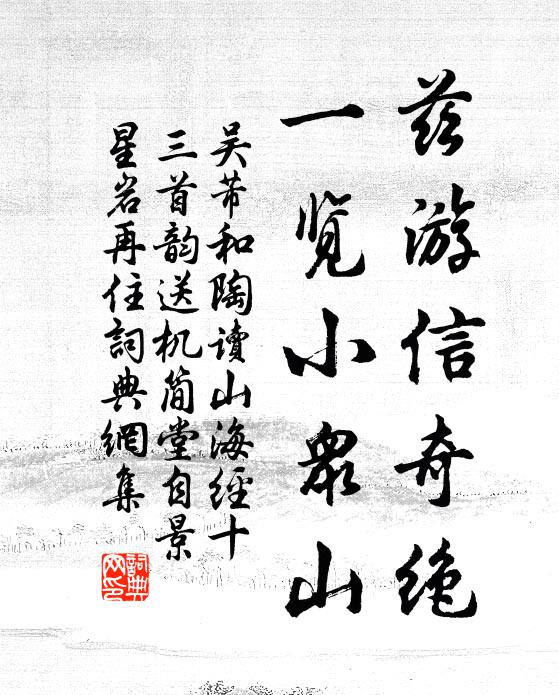 兹游信奇绝
一览小眾山
吴芾和陶讀山海經十
三首韵送机简堂自景
星岩再住詞典網集
詞典
网印